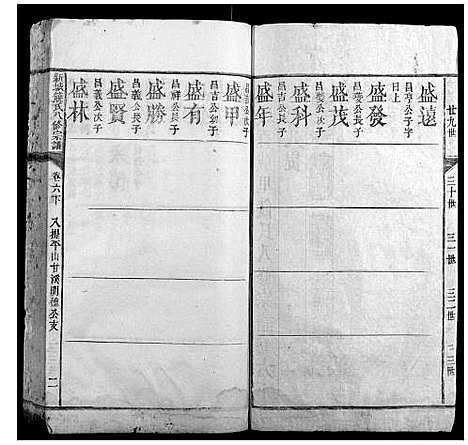 廿九世
三十世
三一世
三二世
三三世
盛遠
昌亨公子字
日上
盛發
昌燮公長子
盛茂
昌燮公次子
盛科
昌吉公長子
盛年
昌吉公次子
盛甲
昌吉公卯子
盛有
昌祥公長子
盛勝
昌義公長子
盛賢
昌義公次子
盛林
卷六下
又提平山廿溪開種公支